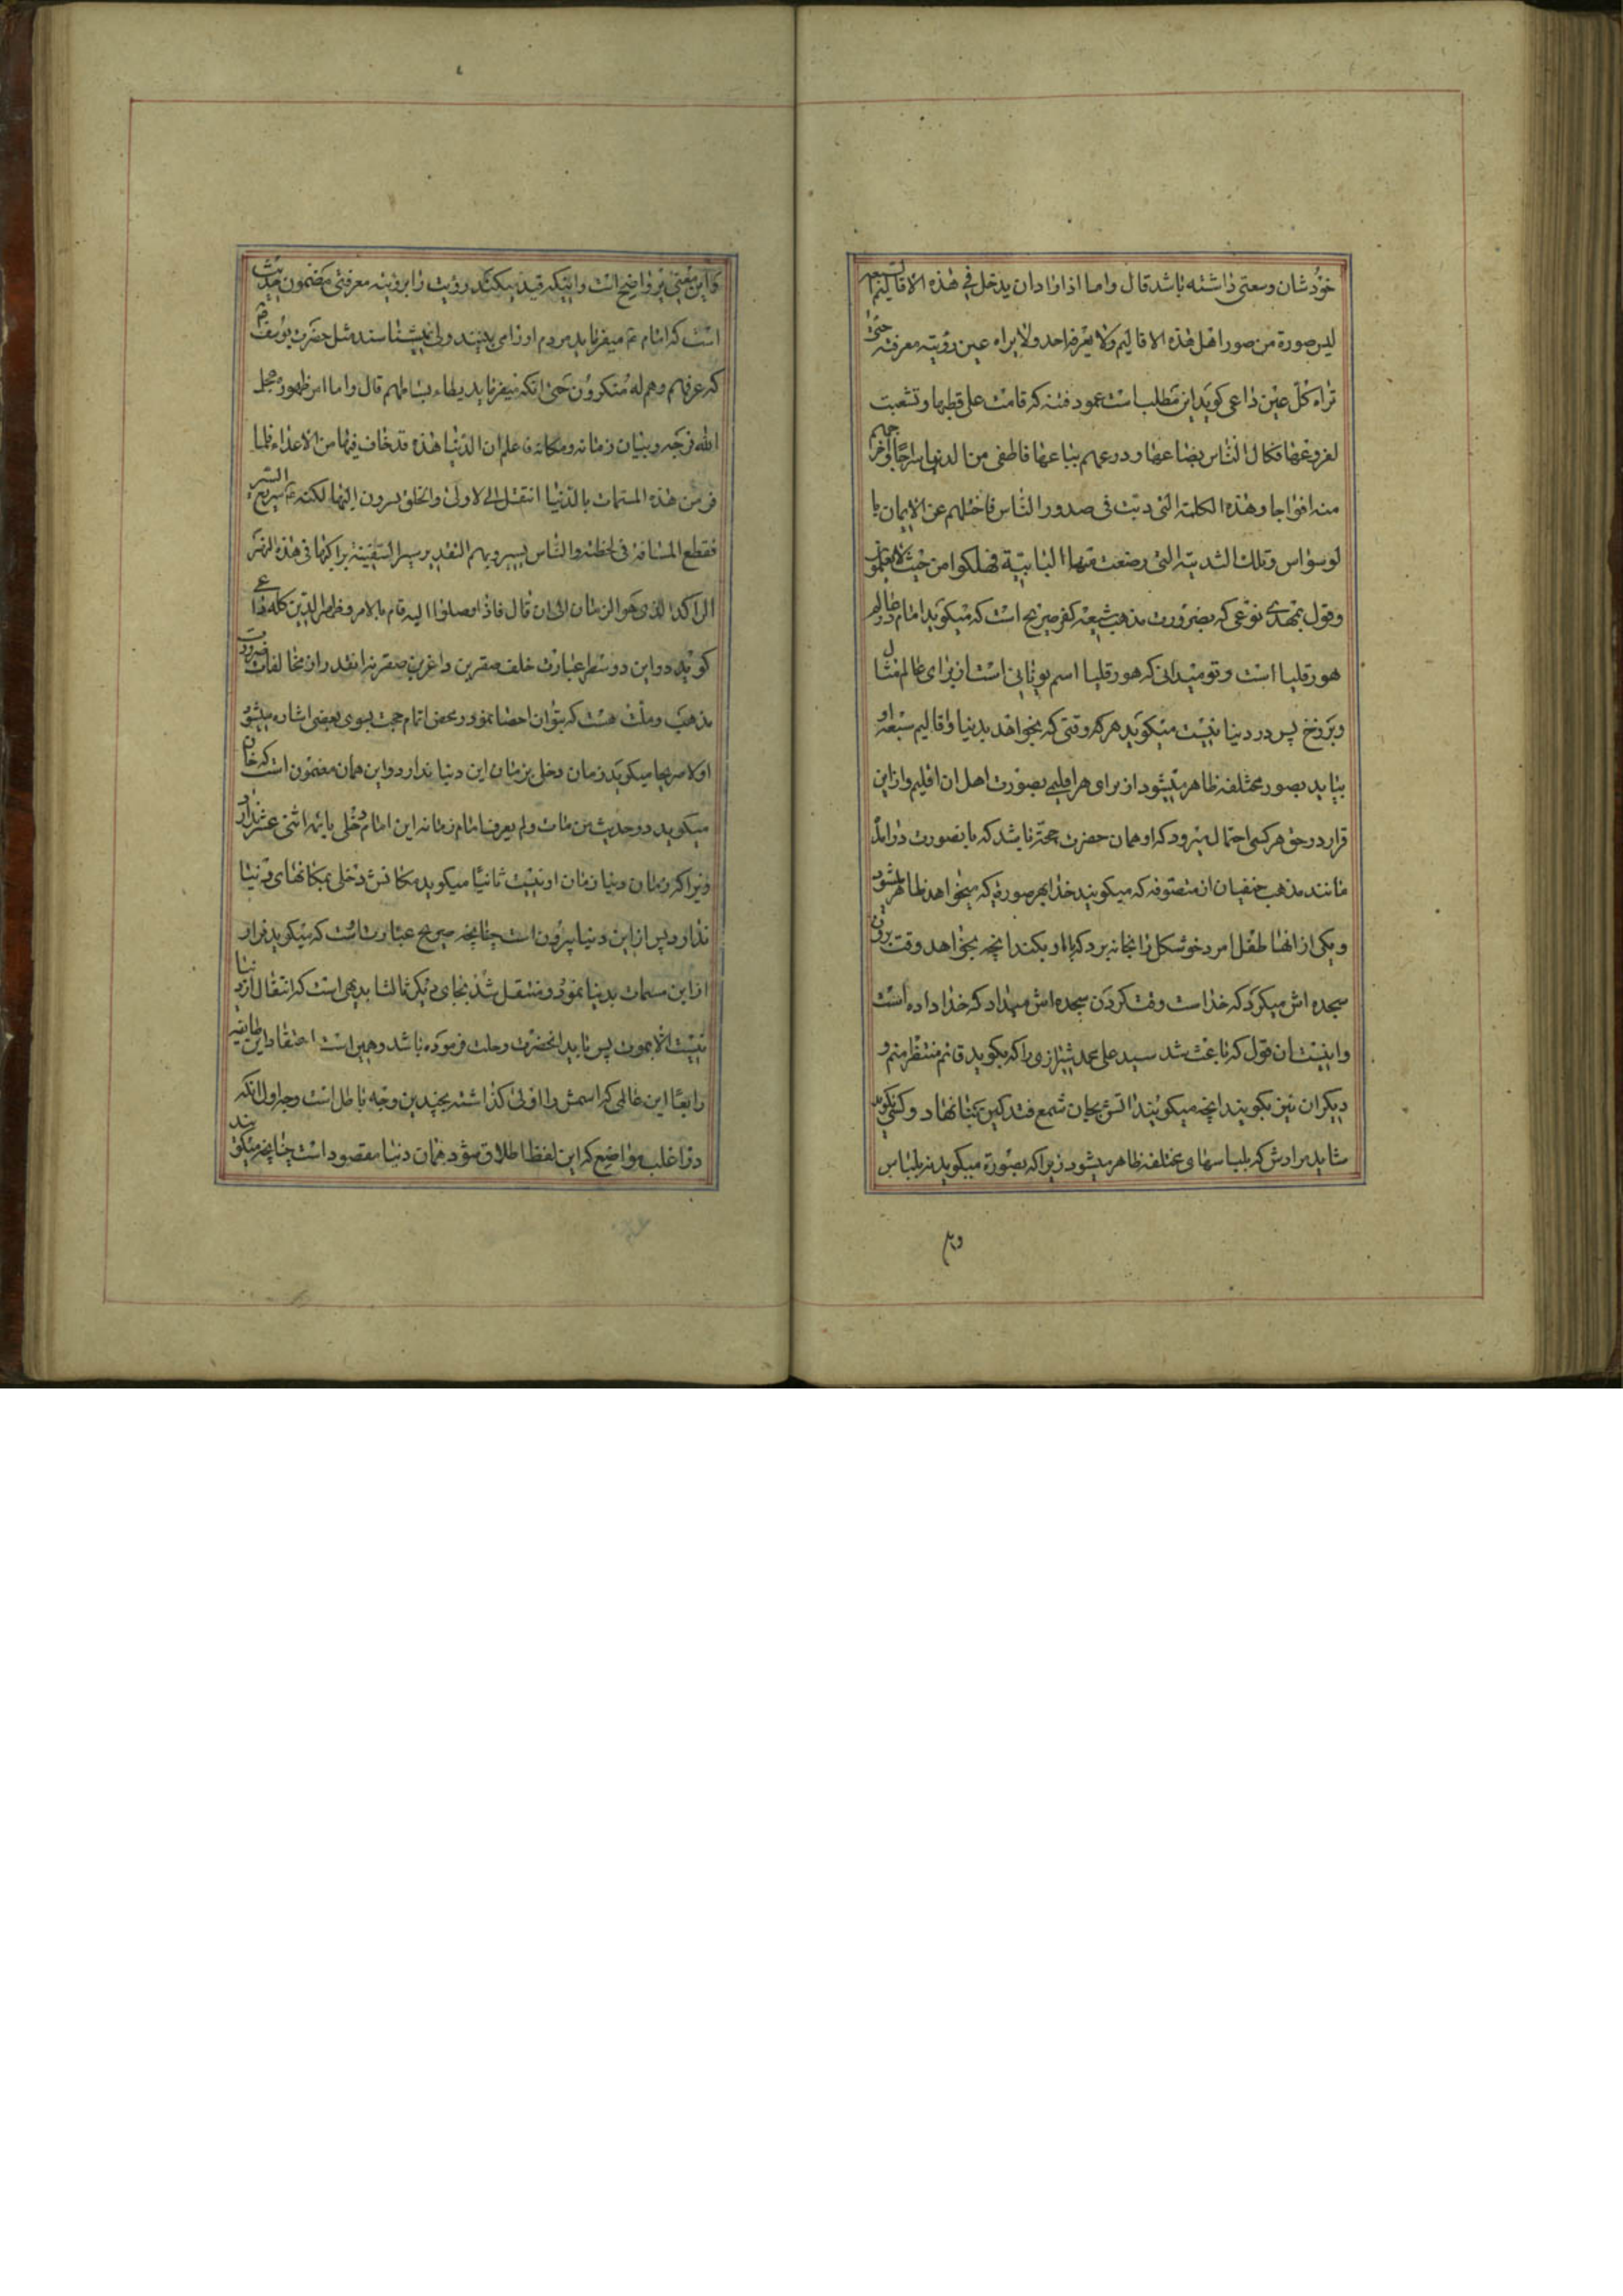 خودشان وسعتی داشته باشد قال واما اذا اراد ان یدخل فی هذه الاقالیم السبعه
لبس صورة من صور اهل هذه الاقالیم ولا یعرفه احد ولا یراه عین رؤیته معرفته حتی
تراه کل عین داعی کوید این مطلب است عمود فتنه که قامت علی قطبها وتشعبت
لفروعها فکال الناس بصاعها و درعهم بباعها فاطفی من الدنیا سراجا واخرجهم
منه افواجا وهذه الکلمة التی دبت فی صدور الناس فاختلهم عن الایمان با
لوسواس وتلک الثدیة التی رضعت منها البابیة فهلکوا من حیث لا یعلمون
وقول بمهدی نوعی که بضرورت مذهب شیعه کفر صریح است که میکوید امام در عالم
هورقلیا است وتو میدانی که هورقلیا اسم یونانی است از برای عالم مثال
وبرزخ پس در دنیا نیست میکوید هر که وقتی که بخواهد بدنیا واقالیم سبعه او
بیاید بصور مختلفه ظاهر میشود از برای هر اقلیمی بصورت اهل ان اقلیم واز این
قرار در حق هر کسی احتمال میرود که او همان حضرت حجة باشد که بانصورت درامد
مانند مذهب حنفیان از متصوفه که میکویند خدا بهر صورة که میخواهد ظاهر میشود
ویکی از انها طفل امرد خوشکل را بخانه برد که با او بکند انچه بخواهد وقت بردن
سجده اش میکرد که خداست وقت کردن سجده اش میداد که خدا داده است
واینست ان قول که باعث شد سید علی محمد شیرازی را که بکوید قائم منتظر منم و
دیکران نیز بکویند انچه میکویند اتش بجان شمع فتد کین بنا نهاد وکسی نکوید
شاید مرادش که بلباسهای مختلفه ظاهر میشود زیرا که بصورة میکوید نه بلباس
و این معنی پر واضح است واینکه قید میکند رؤیت را برؤیته معرفتی مضمون حدیث
است که امام ع میفرماید مردم او را می بینند ولی نمیشناسند مثل حضرت یوسف ع
که عرفهم وهم له منکرون حتی انکه میفرماید یطاء بساطهم قال واما امر ظهوره عجل
الله فرجه وبیان زمانه ومکانه فاعلم ان الدنیا هذه قد خاف فیها من الاعداء فلما
فر من هذه المسمات بالدنیا انتقل الی الاولی والخلق یسرون الیها لکنه ع سریع السیر
فقطع المسافة فی لحظة والناس یسیر بهم التقدیر سیر السفینة براکبها فی هذه النهر
الراکد الذی هو الزمان الی ان قال فاذا وصلوا الیه قام بالامر وظهر الدین کله داعی
کوید در این دو سطر عبارت خلف مقرین انقدر از مخالفات ضرورت
مذهب وملت هست که بتوان احصا نمود ومحض اتمام حجت بسوی بعضی اشاره میشود
اولا صریحا میکوید زمان دخل بزمان این دنیا ندارد واین همان مضمون است که خان
میکوید در حدیث من مات ولم یعرف امام زمانه این امام دخلی بائمه اثنی عشر ندارد
زیرا که زمان دنیا زمان او نیست ثانیا میکوید مکانش دخلی بمکانهای دنیا
ندارد پس از این دنیا بیرون است چنانچه صریح عبارت است که میکوید فرار
از این مسمات بدنیا نمود ومنتقل شد بجای دیکر ثالثا بدیهی است که انتقال از دنیا
نیست الا بموت پس باید انحضرت رحلت فرموده باشد وهمین است اعتقاد این طایفه
رابعا این عالمی که اسمش را اولی کذاشته بچندین وجه باطل است وجه اول انکه
در اغلب مواضع که این لفظ اطلاق شود همان دنیا مقصود است چنانچه میکویند